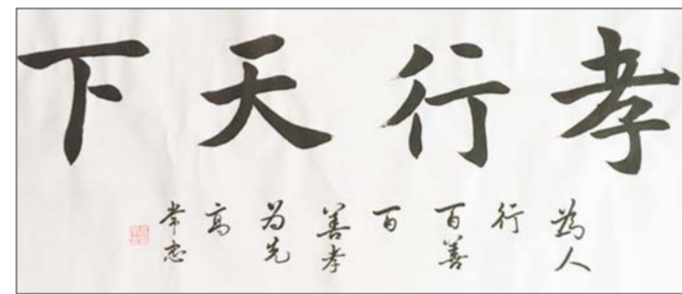 孝行天下
為人
行
百善
百
善孝
为先
高
常忠